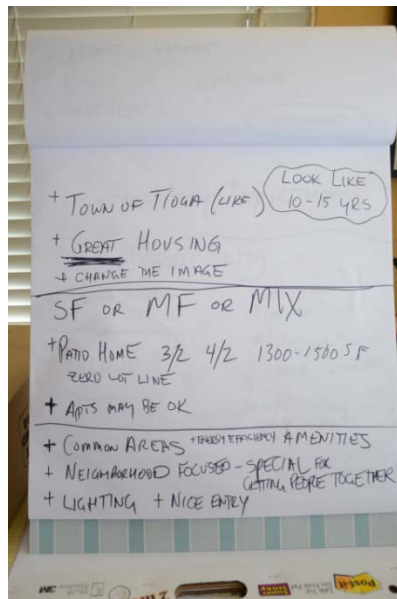 LOOK LIKE
10-15 YRS
+ TOWN OF TIOGA (LIKE)
+ GREAT HOUSING
+ CHANGE THE IMAGE
SF OR MF OR MIX
+ PATIO HOME 3/2 4/2 1300-1500 SF
ZERO LOT LINE
+ APTS MAY BE OK
+ COMMON AREAS + ENERGY EFFICIENCY AMENITIES
+ NEIGHBORHOOD FOCUSED - SPECIAL FOR
GETTING PEOPLE TOGETHER
+ LIGHTING + NICE ENTRY
Post-it